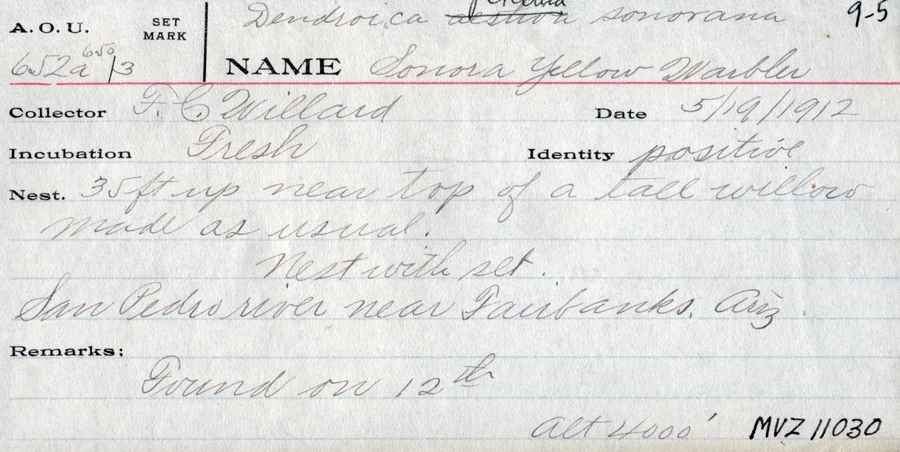 Dendroica aestiva sonorana 9-5
A.O.U. SET MARK
652a 650/3 NAME Sonora Yellow Warbler
Collector F. C. Willard Date 5/19/1912
Incubation Fresh Identity positive
Nest. 35 ft up near top of a tall willow
made as usual.
Nest with set.
San Pedro river near Fairbanks. Ariz.
Remarks:
Found on 12th
Alt 4000' MVZ 11030